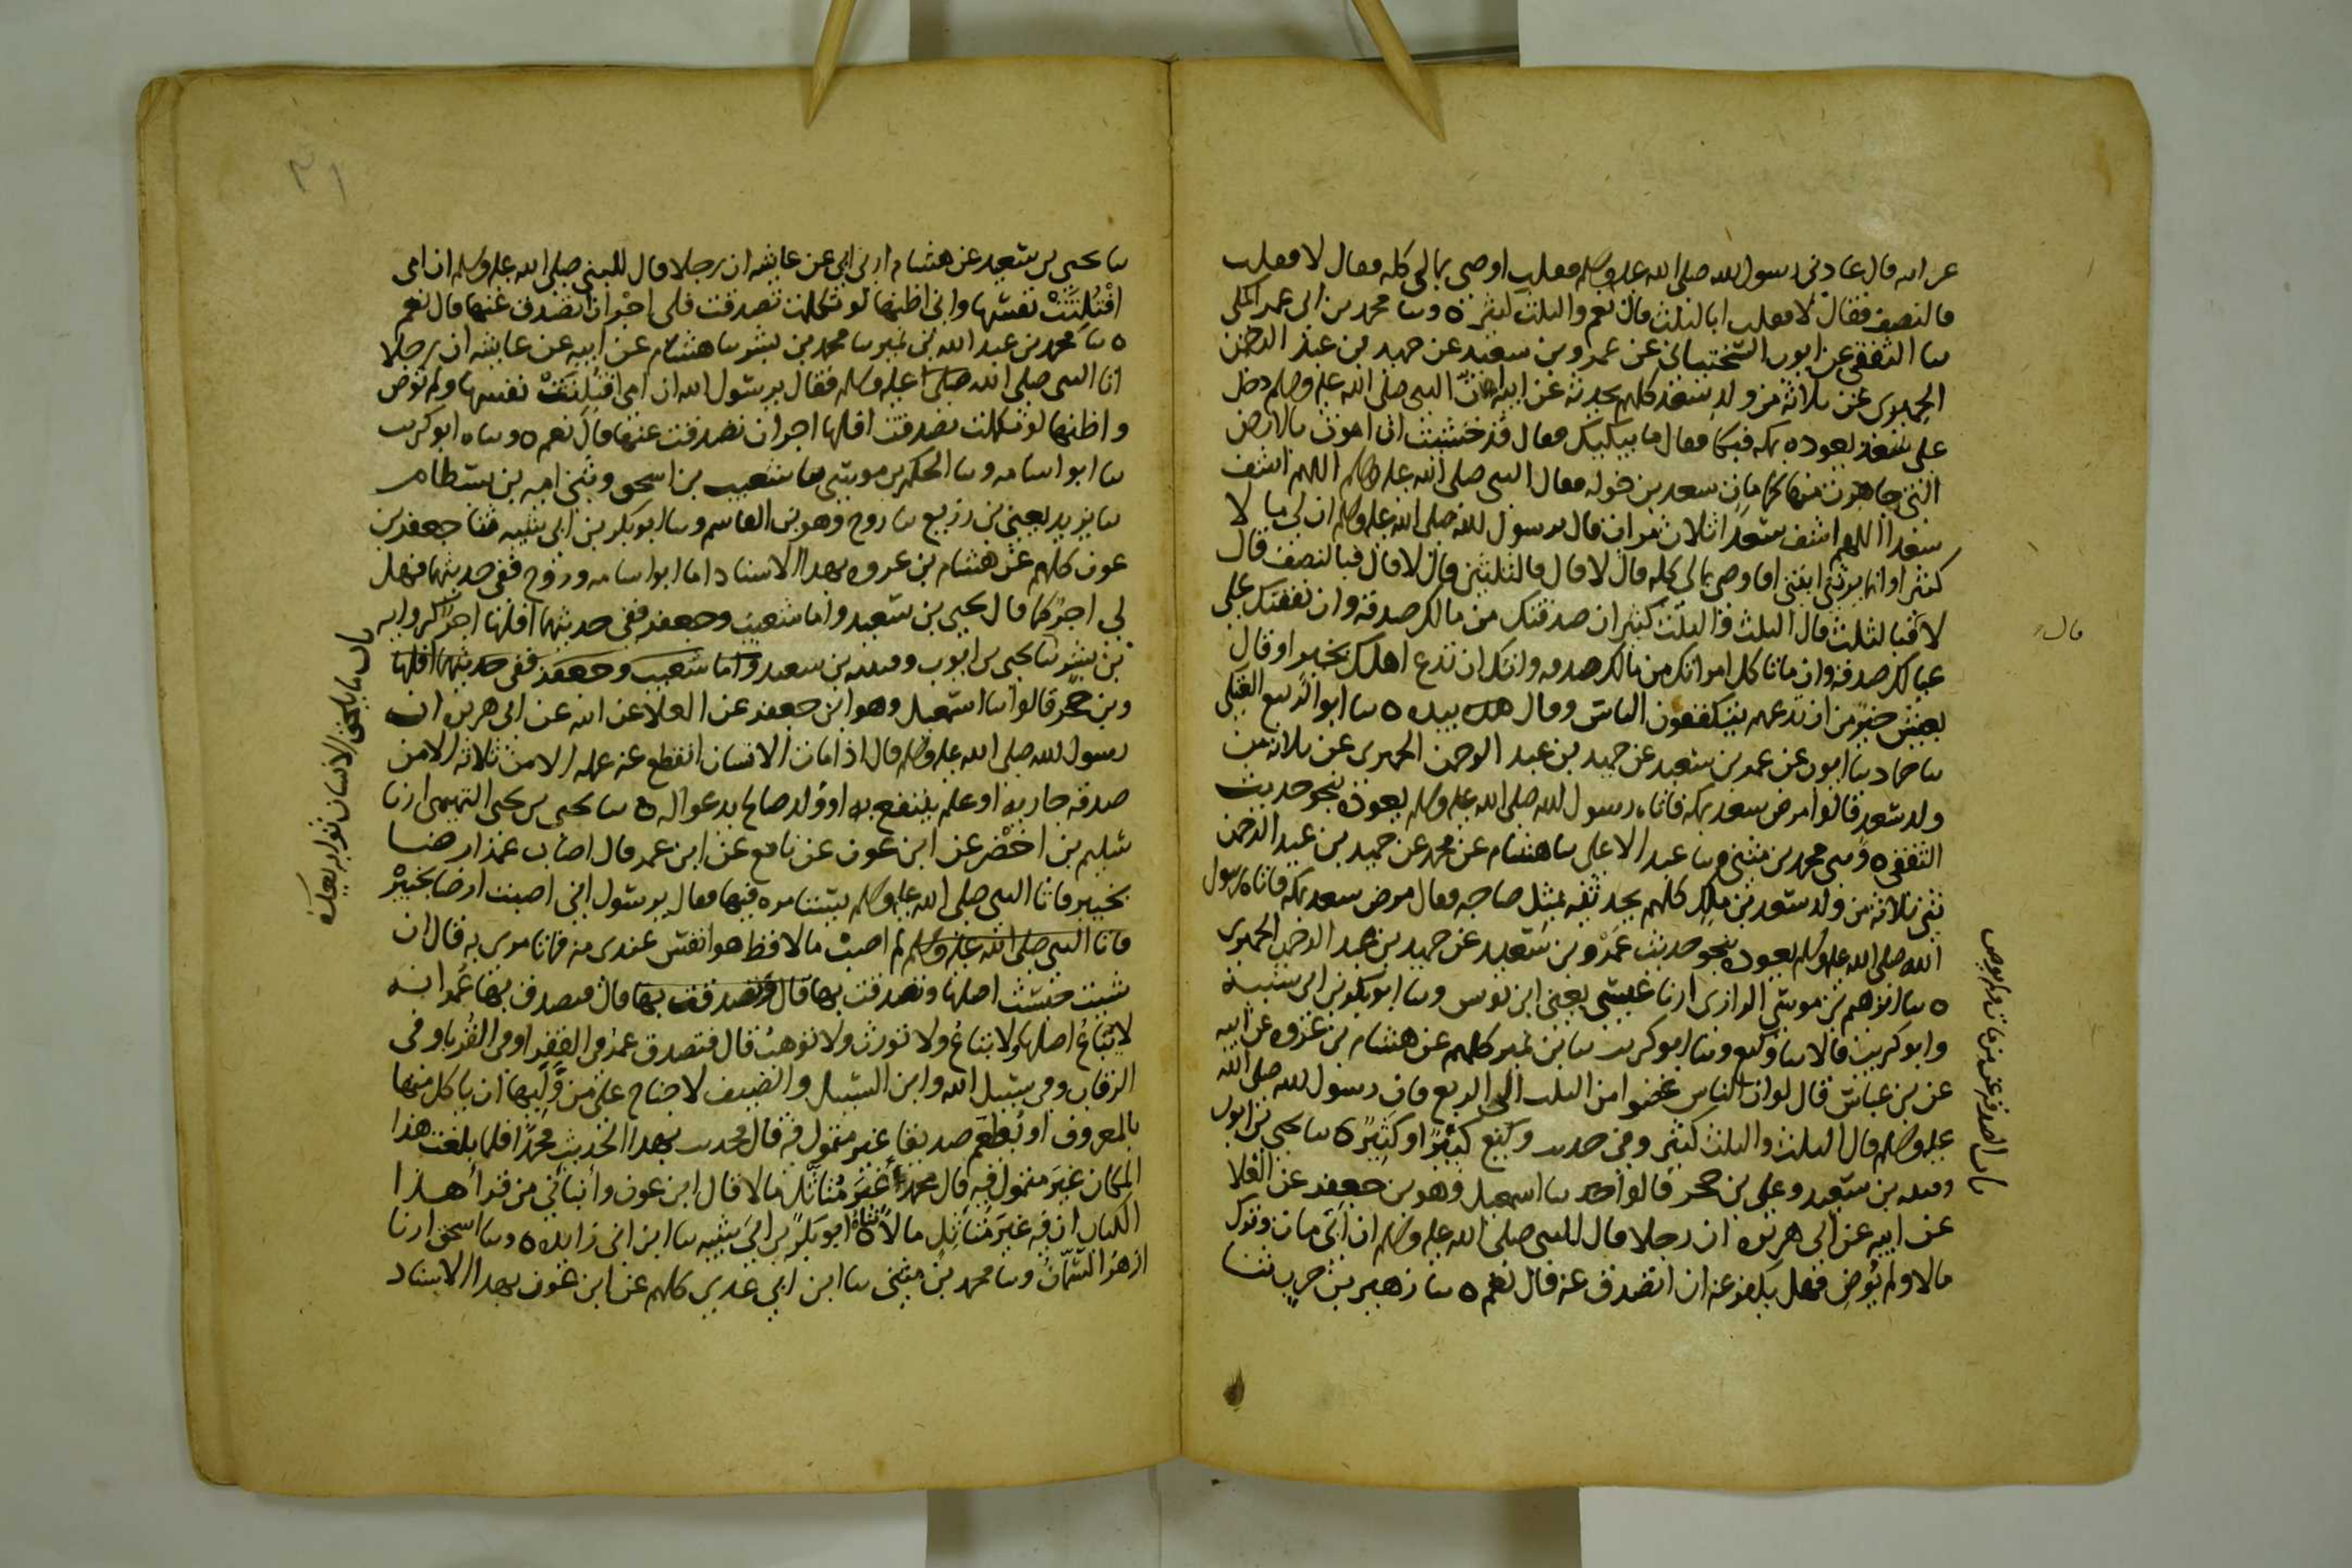 عن ابيه قال عادني رسول الله صلى الله عليه وسلم فقلت اوصي بمالي كله فقال لا فقلت
فالنصف فقال لا فقلت ابالثلث قال نعم والثلث كثير ٥ وثنا محمد بن ابي عمر المكي
ثنا الثقفي عن ايوب السختياني عن عمرو بن سعيد عن حميد بن عبد الرحمن
الحميري عن ثلاثة من ولد سعد كلهم يحدثه عن ابيه ان النبي صلى الله عليه وسلم دخل
على سعد يعوده بمكه فبكا فقال ما يبكيك فقال قد خشيت ان اموت بالارض
التي هاجرت منها كما مات سعد بن خوله فقال النبي صلى الله عليه وسلم اللهم اشف
سعدا اللهم اشف سعدا ثلاث مرات قال يرسول الله صلى الله عليه وسلم ان لي مالا
كثيرا وانما يرثني ابنتي افاوصي بمالي كله قال لا قال فالثلثين قال لا قال فبالنصف قال
لا قال فبالثلث قال الثلث والثلث كثير ان صدقتك من مالك صدقه وان نفقتك على
عيالك صدقه وان ما تاكل امراتك من مالك صدقه وانك ان تدع اهلك بخير او قال
بعيش خير من ان تدعهم يتكففون الناس وقال هك بيده ٥ ثنا ابو الربيع العتكي
ثنا حماد ثنا ايوب عن عمرو بن سعيد عن حميد بن عبد الرحمن الحميري عن ثلاثة من
ولد سعد قالوا مرض سعد بمكه فاتاه رسول الله صلى الله عليه وسلم يعوده بنحو حديث
الثقفي ٥ وثني محمد بن مثنى ثنا عبد الاعلى ثنا هشام عن محمد عن حميد بن عبد الرحمن
ثني ثلاثة من ولد سعد بن ملك كلهم يحدثنيه بمثل صاحبه فقال مرض سعد بمكه فاتاه رسول
الله صلى الله عليه وسلم يعوده بنحو حديث عمرو بن سعيد عن حميد بن عبد الرحمن الحميري
٥ ثنا ابرهيم بن موسى الرازي ارنا عيسى يعني ابن يونس وثنا ابو بكر بن ابي شيبة
وابو كريب قالا ثنا وكيع وثنا ابو كريب ثنا بن نمير كلهم عن هشام بن عروه عن ابيه
عن بن عباس قال لو ان الناس غضوا من الثلث الى الربع فان رسول الله صلى الله
عليه وسلم قال الثلث والثلث كثير وفي حديث وكيع كبير او كثير ٥ ثنا يحيى بن ايوب
وقتيبه بن سعيد وعلي بن حجر قالوا ثنا اسمعيل وهو بن جعفر عن العلا
عن ابيه عن ابي هريره ان رجلا قال للنبي صلى الله عليه وسلم ان ابي مات وترك
مالا ولم يوص فهل يكفر عنه ان اتصدق عنه قال نعم ٥ ثنا زهير بن حرب ثنا
قال
باب الصدقه عن من مات ولم يوص
٣١
ثنا يحيى بن سعيد عن هشام ارني ابي عن عايشه ان رجلا قال للنبي صلى الله عليه وسلم ان امي
افتلتت نفسها واني اظنها لو تكلمت تصدقت فلي اجر ان اتصدق عنها قال نعم
٥ ثنا محمد بن عبد الله بن نمير ثنا محمد بن بشر ثنا هشام عن ابيه عن عايشه ان رجلا
اتا النبي صلى الله عليه وسلم فقال يرسول الله ان امي افتلتت نفسها ولم توص
واظنها لو تكلمت تصدقت افلها اجر ان تصدقت عنها قال نعم ٥ وثناه ابو كريب
ثنا ابو اسامه وثنا الحكم بن موسى ثنا شعيب بن اسحق وثني اميه بن بسطام
ثنا يزيد يعني بن زريع ثنا روح وهو بن القاسم وثنا ابو بكر بن ابي شيبه ثنا جعفر بن
عون كلهم عن هشام بن عروه بهذا الاسناد اما ابو اسامه وروح ففي حديثهما فهل
لي اجر كما قال يحيى بن سعيد واما شعيب وجعفر ففي حديثهما افلها اجر كروايه
بن بشر ثنا يحيى بن ايوب وقتيبه بن سعيد واما شعيب وجعفر ففي حديثهما افلها
وبن حجر قالوا ثنا اسمعيل وهو ابن جعفر عن العلا عن ابيه عن ابي هريره ان
رسول الله صلى الله عليه وسلم قال اذا مات الانسان انقطع عنه عمله الا من ثلاثه الا من
صدقه جاريه او علم ينتفع به او ولد صالح يدعوا له ٥ ثنا يحيى بن يحيى التميمي ارنا
سليم بن اخضر عن ابن عون عن نافع عن ابن عمر قال اصاب عمر ارضا
بخيبر فاتا النبي صلى الله عليه وسلم يستامره فيها فقال يرسول اني اصبت ارضا بخيبر
فاتا النبي صلى الله عليه وسلم لم اصب مالا قط هو انفس عندي منه فما تامرني به قال ان
شيت حبست اصلها وتصدقت بها قال وتصدقت بها قال فتصدق بها عمر انه
لا يباع اصلها ولا يبتاع ولا تورث ولا توهب قال فتصدق عمر في الفقرا وفي القربا وفي
الرقاب وفي سبيل الله وابن السبيل والضيف لا جناح على من وليها ان ياكل منها
بالمعروف او يطعم صديقا غير متمول فيه قال فحدثت بهذا الحديث محمدا فلما بلغت هذا
المكان غير متمول فيه قال محمد غير متاثل مالا قال ابن عون وانباني من قرا هذا
الكتاب ان فيه غير متاثل مالا ثناه ابو بكر بن ابي شيبه ثنا ابن ابي زايده ٥ وثنا اسحق ارنا
ازهر السمان وثنا محمد بن مثنى ثنا ابن ابي عدي كلهم عن ابن عون بهذا الاسناد
باب ما يلحق الانسان ثوابه بعده